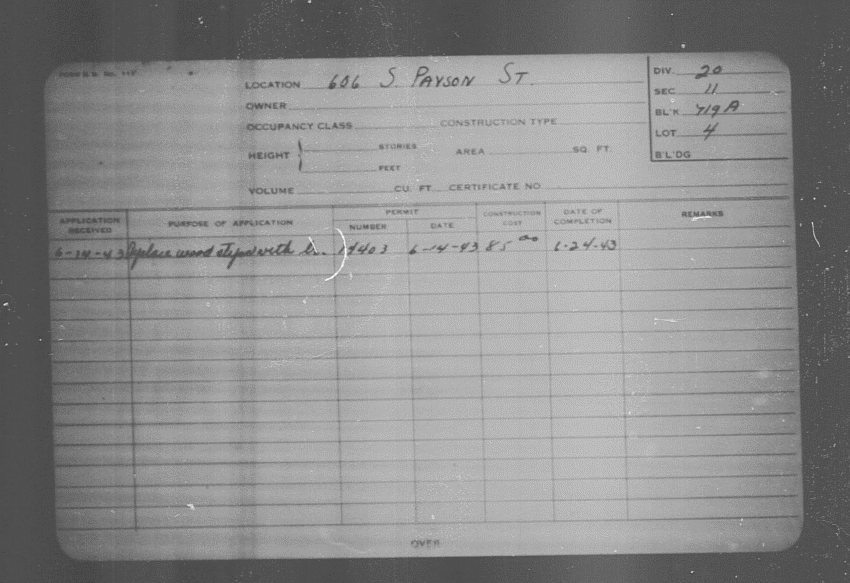 FORM B.B. No. 115
LOCATION 606 S. PAYSON ST.
OWNER
OCCUPANCY CLASS CONSTRUCTION TYPE
HEIGHT STORIES AREA SQ. FT.
FEET
VOLUME CU. FT. CERTIFICATE NO.
DIV. 20
SEC 11
BL'K 719 A
LOT 4
B'L'DG
APPLICATION RECEIVED PURPOSE OF APPLICATION PERMIT NUMBER DATE CONSTRUCTION COST DATE OF COMPLETION REMARKS
6-14-43 Replace wood steps with 6-14-43 85 00 6-24-43
OVER